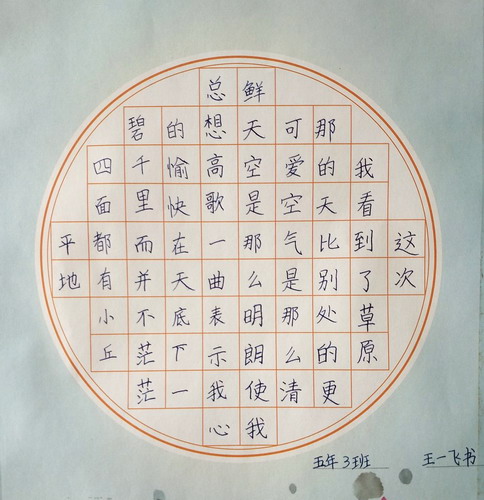 这次
我看到了草原
那的天比别处的更
可爱空气是那么清
鲜天空是那么明朗使我
总想高歌一曲表示我心
的愉快在天底下一
碧千里而并不茫茫
四面都有小丘
平地
五年3班 王一飞书